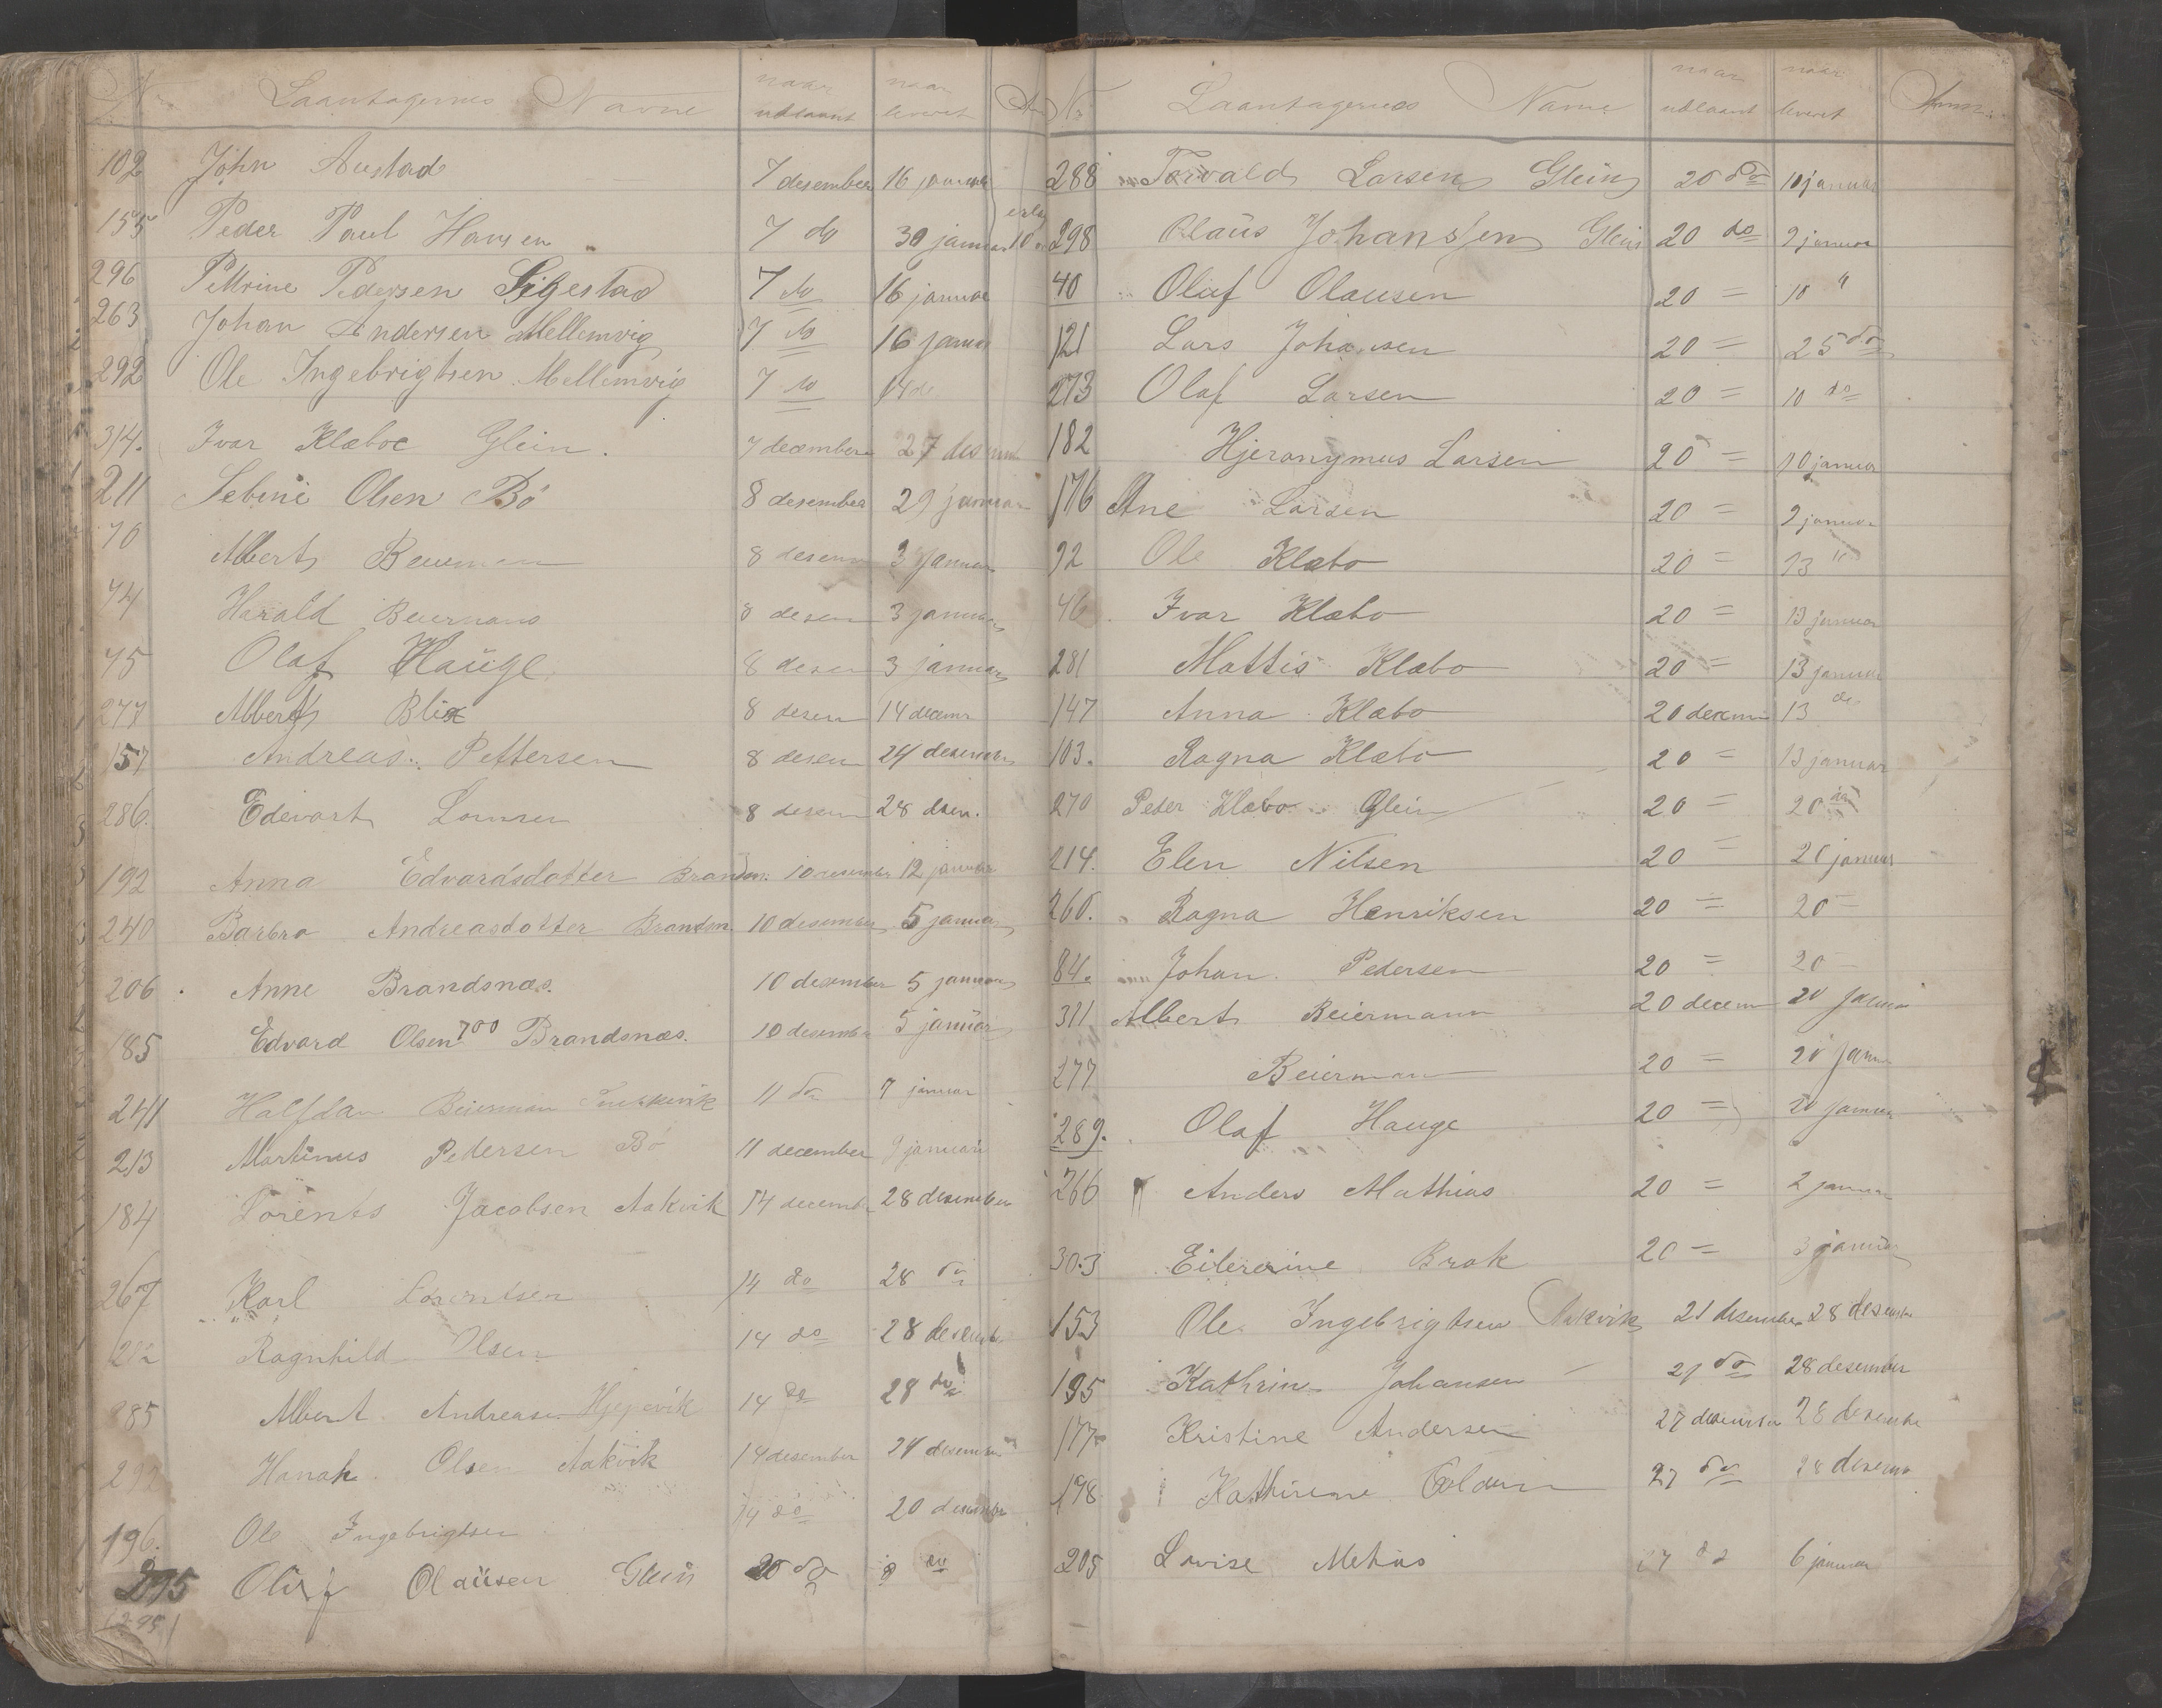 Nr Laantagernes Navne naar udlaant naar leveret
102 John Austad 7 desember 16 januar
155 Peder Paul Hansen 7 do 30 januar
296 Pettrine Pedersen Sigestad 7 do 16 januar
263 Johan Andersen Mellemvig 7 do 16 januar
292 Ole Ingebrigtsen Mellemvig 7 do 14 de
314. Ivar Klæboe Glein. 7 december 27 desemb
211 Sebine Olsen Bö 8 desember 29 januar
76 Albert 8 desem 3 januar
74 Harald Beiermann 8 desem 3 januar
75 Olaf Hauge 8 desem 3 januar
277 Albert Blix 8 desem 14 decemr
157 Andreas Pettersen 8 desem 24 desember
286. Edevart 8 desem 28 desem.
192 Anna Edvardsdotter Brandsn. 10 desember 12 januar
240 Barbro Andreasdotter Brandsn. 10 desember 5 januar
206 Anne Brandsnæs. 10 desember 5 januar
185 Edvard Olsen Brandsnæs. 10 desember 5 januar
241 Halfdan Beierman 11 do 7 januar
213 Martinus Pedersen Bö 11 december 9 januari
184 Lorents Jacobsen Aakvik 14 decembr 28 desember
267 Karl Lorentsen 14 do 28 do
Ragnhild Olsen 14 do 28 desemb
285 Albert Andreasen 14 do 28 do
Hanah Olsen Aakvik 14 desember 24 desember
196. Ole Ingebrigtsen 14 do 20 desember
295 Oluf Olaüsen Glein 20 do
(295)
Nr Laantagernes Navne naar udlaant naar leveret Anm:
288 Torvald Larsen Glein 20 do 10 januar
298 Olaüs Johansen Glein 20 do 2 januar
40 Oluf Olausen 20 = 10 "
121 Lars Johansen 20 = 25 do
273 Olaf Larsen 20 = 10 do
182 Hjeronymus Larsen 20 = 10 januar
176 Ane Larsen 20 = 2 januar
92 Ole Klæbo 20 = 13 "
46 Ivar Klæbo 20 = 13 januar
281 Mattis Klæbo 20 = 13 januar
147 Anna Klæbo 20 decem 13 do
103. Ragna Klæbo 20 = 13 januar
270 Peder Klæbo Glein 20 = 20
214. Elen Nilsen 20 = 21 januar
260. Ragna Henriksen 20 = 20 -
84. Johan Pedersen 20 = 20 -
311 Albert Beiermann 20 decem 20 januar
277 Beierman 20 = 20 janu
289. Olaf Hauge 20 = 20 januar
266 Anders Mathias 20 = 2 januar
303 Brok 20 = 3 januar
153 Ole Ingebrigtsen Aakvik 21 desember 28 desember
195 Kathrine Johansen 21 do 28 desember
177 Kristine Andersen 27 desember 28 desembe
198 Kathirine 27 do 28 desemb
205 Lovise 27 do 6 januar